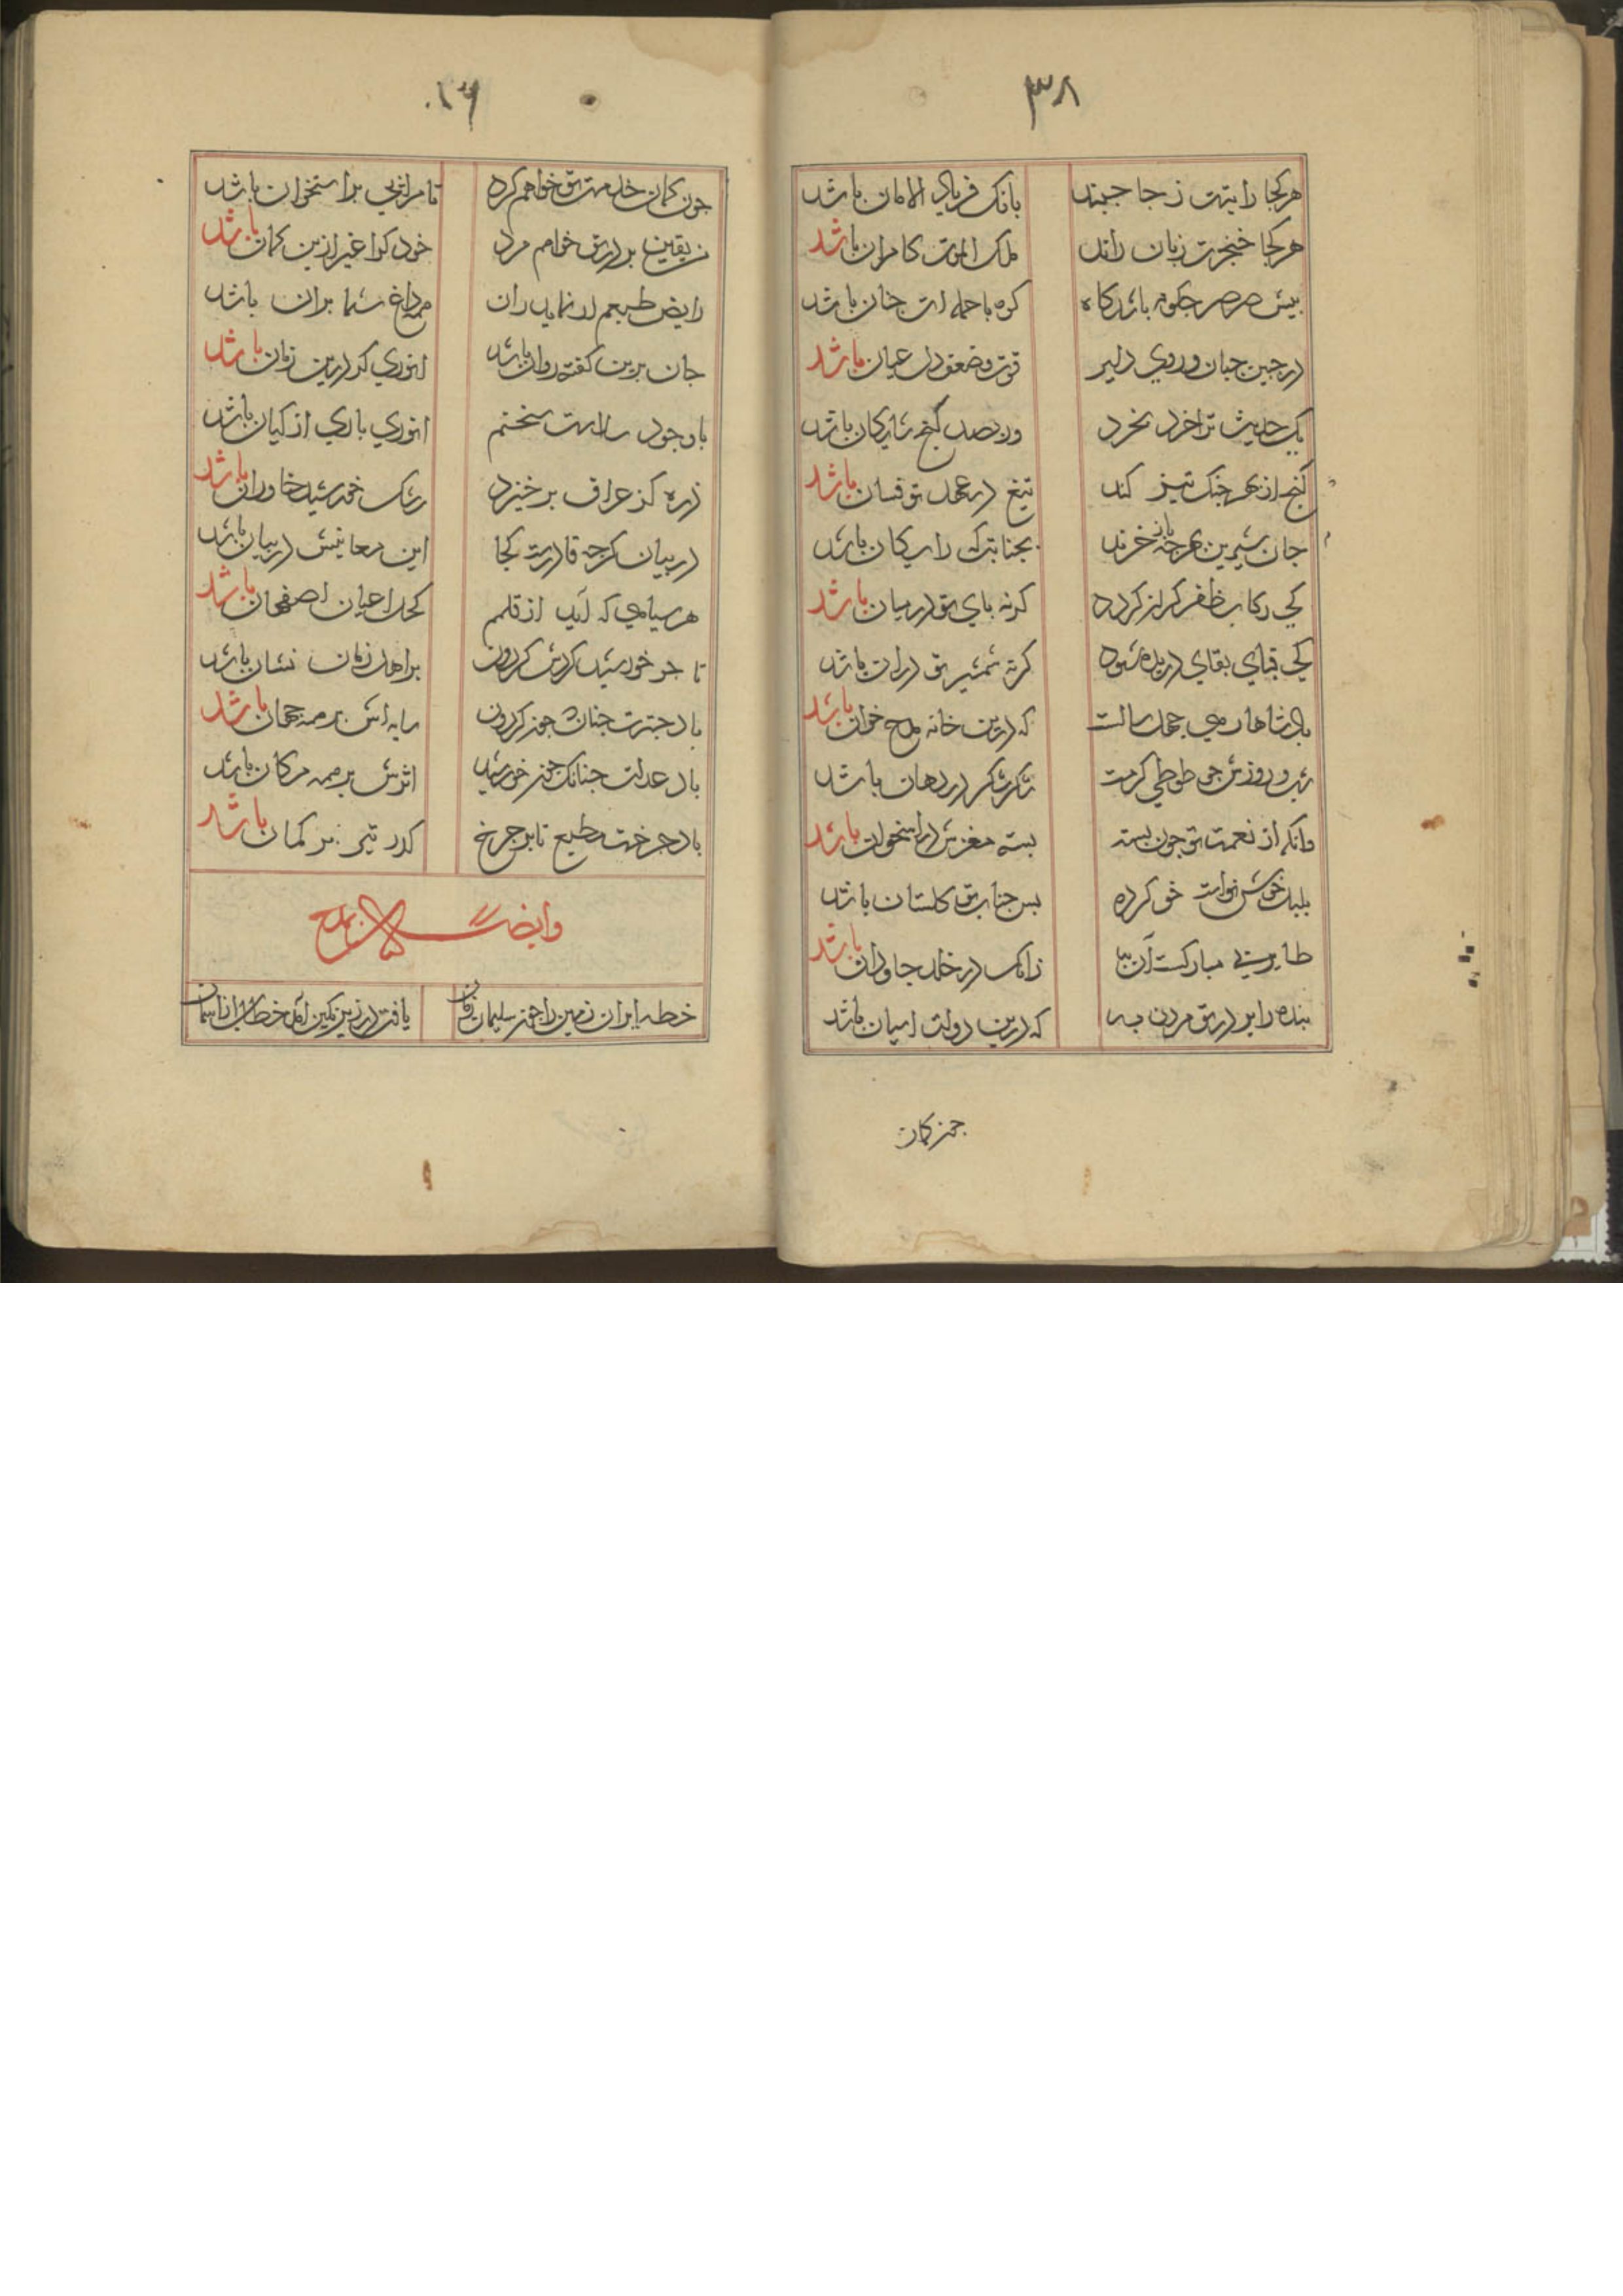 ۳۸
هر کجا رایتت ز جا جنبد بانک فریاد الامان باشد
هر کجا خنجرت زبان راند ملک الموت کامران باشد
پیش صرصر چکونه باشد کاه کوه با حمله ات چنان باشد
در جبین جبان و روی دلیر قوت و ضعف دل عیان باشد
یک حدیث ترا خرد بخرد ور بصد کنج شایکان باشد
کنج از بهر جنک تیز کند تیغ در عهد تو فسان باشد
جان شیرین بهر چه باز خرند بجنابت که رایکان باشد
کی رکاب ظفر کران کردد کرنه پای تو در میان باشد
کی قبای بقای دریده شود کرنه شمشیر تو در ان باشد
پادشاها رهی چهل سالست که درین خانه مدح خوان باشد
شب و روزش چو طوطی کرمت شکر شکر در دهان باشد
وانکه از نعمت تو چون پسته بسته مغزش در استخوان باشد
بلبل خوش نوات خو کرده بس جناب تو کلستان باشد
طایری مبارکست آن زانک در خلد جاودان باشد
بنده را بر در تو مردن به که درین دولت اسان باشد
چون کمان
چون کمان خدمت تو خواهم کرد تا مرا پی بر استخوان باشد
زیقین بر در تو خواهم مرد خود کرا غیر ازین کمان باشد
رایض طبعم ار نماید ران داغ شما بران باشد
جان برین کفته روان باشد انوری کر درین زمان باشد
با وجود رسالت سخنم انوری باری از کیان باشد
ذره کز عراق برخیزد رشک خورشید خاوران باشد
در بیان کرچه قادرست کجا این معانیش در بیان باشد
هر سیاهی که آید از قلمم کحل اعیان اصفهان باشد
تا جو خورشید کردش کردون بر اهل زمان نشان باشد
باد چترت چنان چو کردون سایه اش بر همه جهان باشد
باد عدلت چنانک چون خورشید اثرش بر همه مکان باشد
باد چرخت مطیع تا بر چرخ کدر تیر بر کمان باشد
وایضا یمدح
خطه ایران زمین را چون سلیمان زمان یافت در زیر نکین آمد خطاب از اسمان